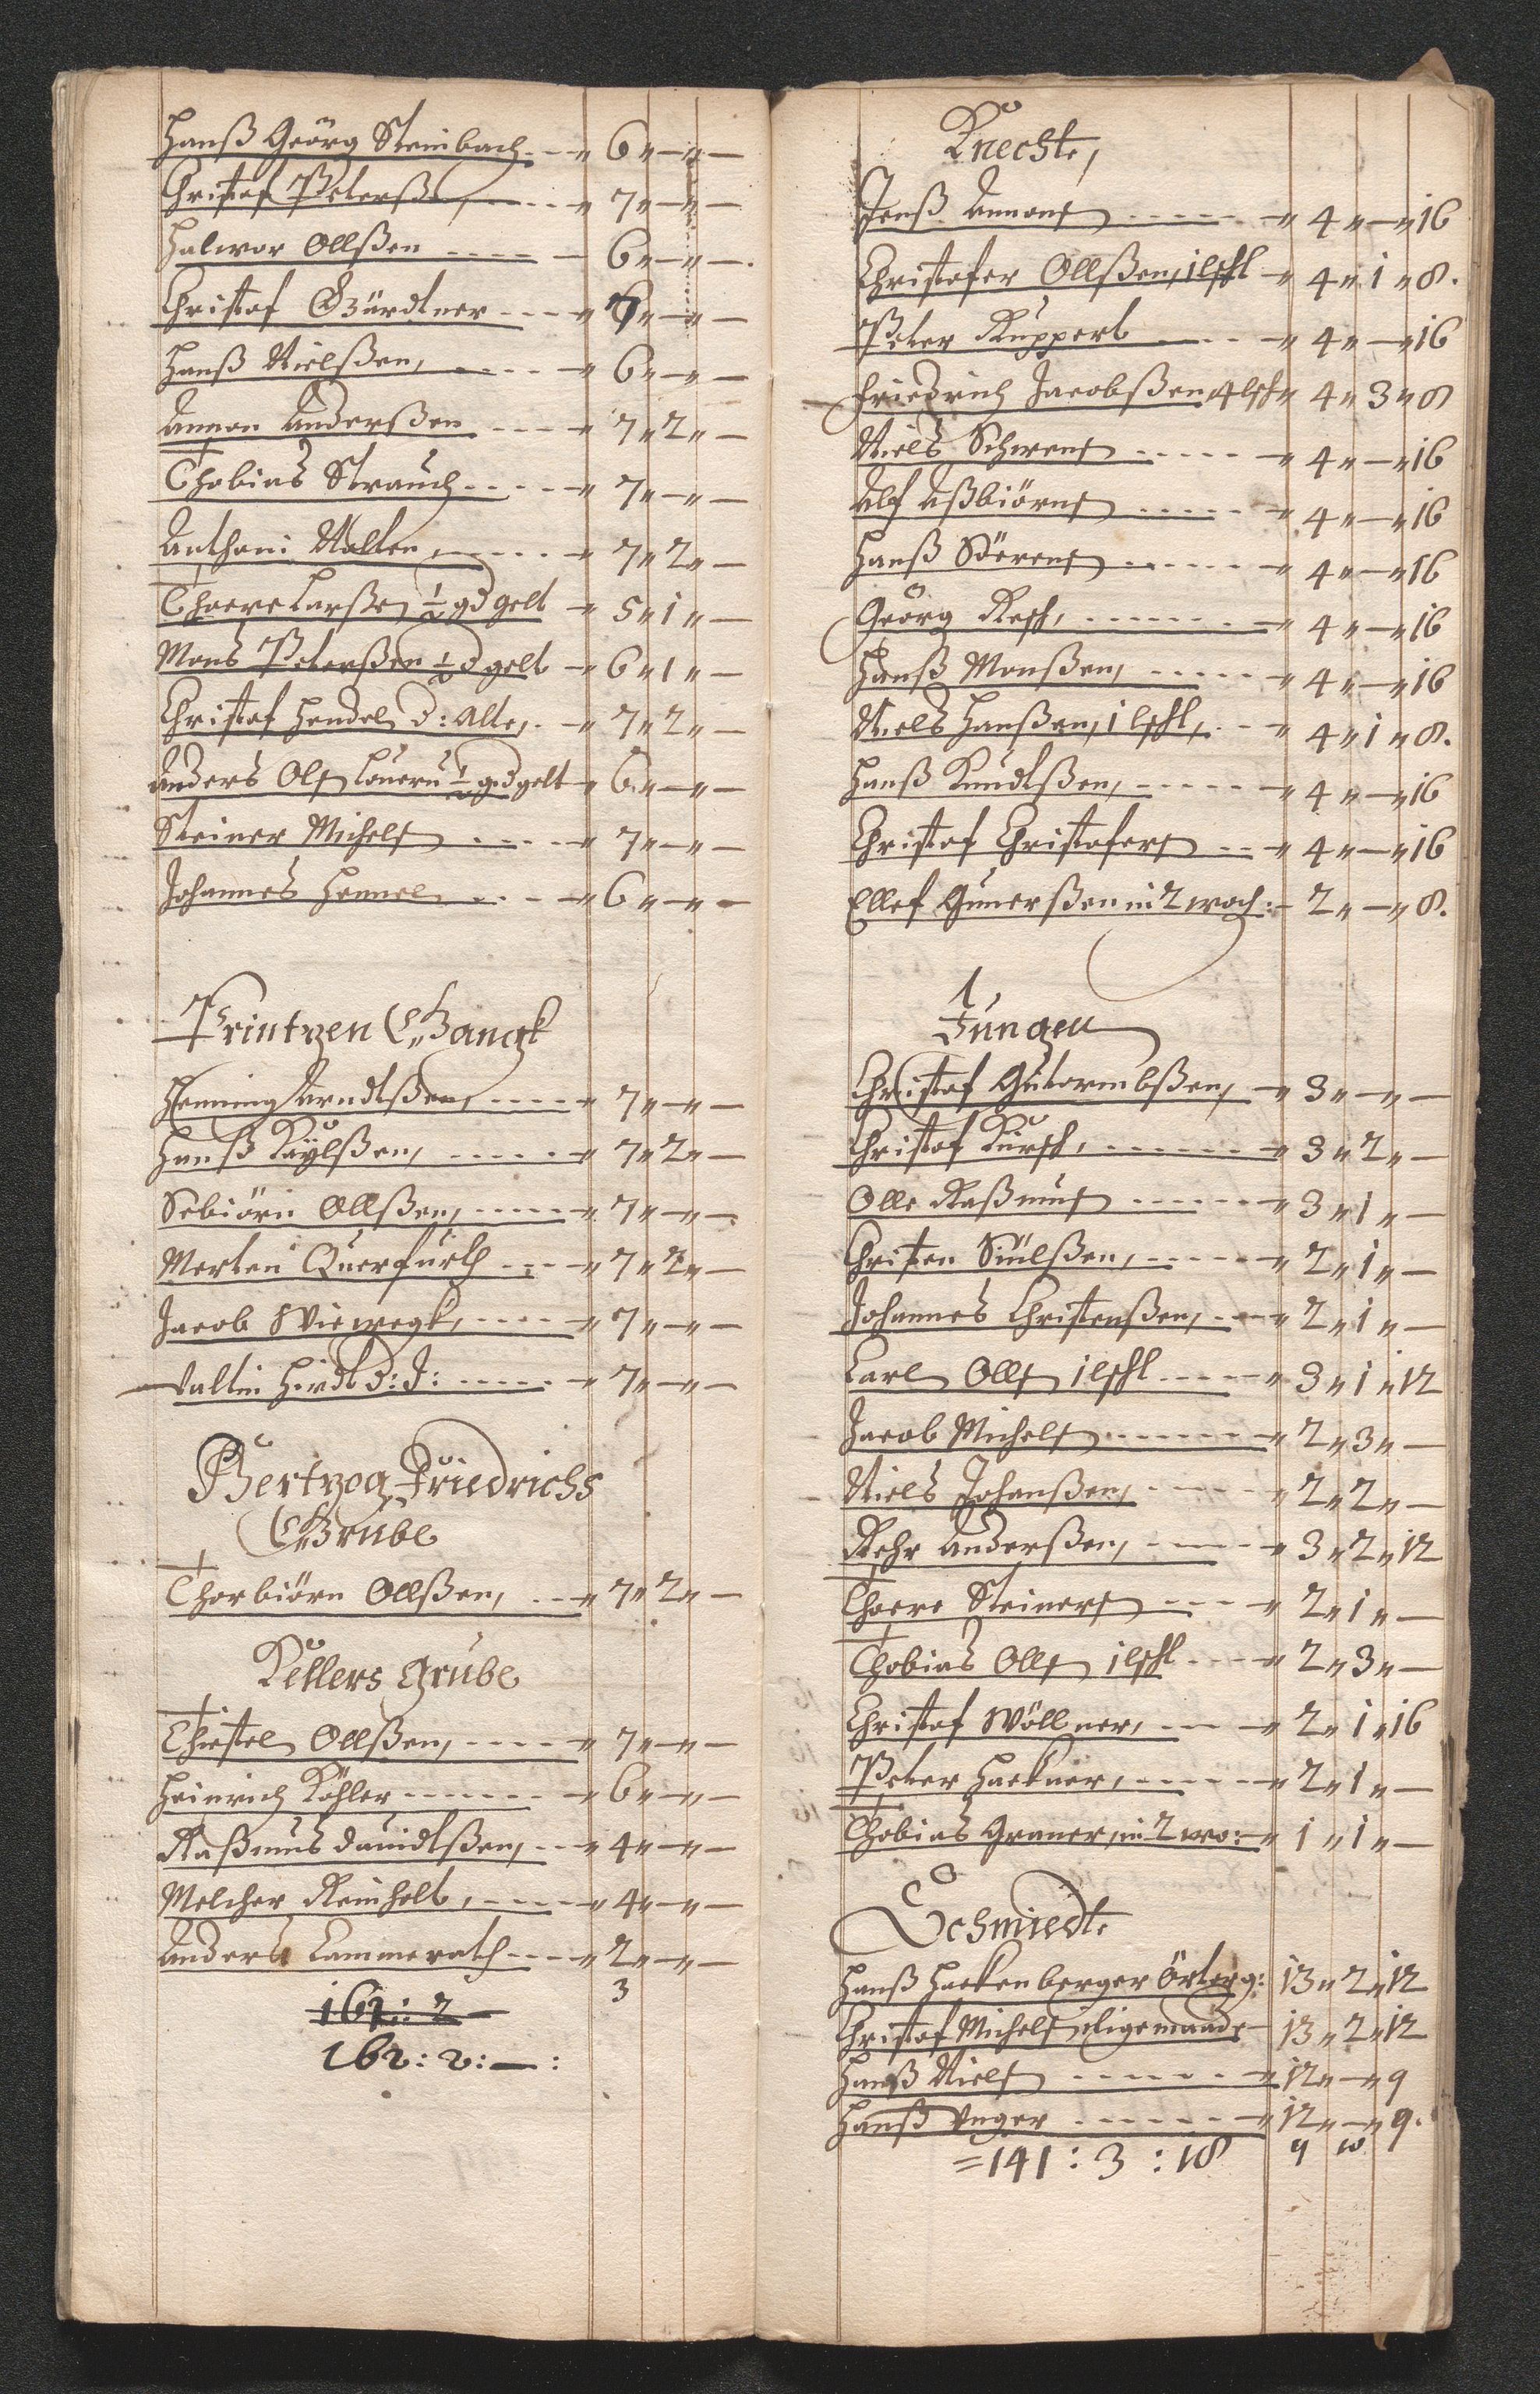 Hanß Geörg Steinbach - - " 6 " — " —
Christof Peterßen, - - - " 7 " — " —
Halwor Ollßen - - - - — 6 " — " —
Christof Gärdtner - - - " 7 " — " —
Hanß Nielßen, - - - - " 6 " — " —
Ammon Anderßen - - - - " 7 " 2 " —
Thobias Strauch - - - - " 7 " — " —
Anthoni Nolten, - - - - " 7 " 2 " —
Thoere Larße ½ gd gelt - " 5 " 1 " —
Mons Peterßen ½ d gelt - " 6 " 1 " —
Christof Hendel d: Alte, - " 7 " 2 " —
Anders Olß ½ gd gelt " 6 " — " —
Steiner Michelß - - - " 7 " — " —
Johannes Hennel - - - " 6 " — " —
Printzen Gangk
Henning Arndtßen, - - - - " 7 " — " —
Hanß Kaÿlßen, - - - - " 7 " 2 " —
Sebiörn Ollßen, - - - - " 7 " — " —
Merten Querfurth - - - " 7 " 2 " —
Jacob Viewegk, - - - - " 7 " — " —
Valtin Hirdt d: J: - - - - " 7 " — " —
Hertzog Friedrichs
Grube
Thorbiörn Ollßen, - - " 7 " 2 " —
Kellers Grube
Thistel Ollßen, - - - - " 7 " — " —
Heinrich Köhler - - - - - " 6 " — " —
Raßmus Dauidtßen, - - " 4 " — " —
Melcher Reinholt, - - - - " 4 " — " —
Anders Cammerath - - - " 2 " — " —
3
161: 2 —
162: 2: — :
Knechte,
Jenß Ammonß - - - - - " 4 " — " 16
Christofer Ollßen, 1 lßhl - " 4 " 1 " 8.
Peter Ruppert - - - - " 4 " — " 16
Friedrich Jacobßen, 4 lßh " 4 " 3 " 8
Niels Schwenß - - - - - " 4 " — " 16
Alf Aßbiörnß - - - - - " 4 " — " 16
Hanß Söerenß - - - - - " 4 " — " 16
Geörg Resch, - - - - - - " 4 " — " 16
Hanß Monßen, - - - - - " 4 " — " 16
Niels Hanßen, 1 lßhl, - - " 4 " 1 " 8.
Hanß Knudtßen, - - - - " 4 " — " 16
Christof Christoferß - - " 4 " — " 16
Ellef Gunerßen in 2 woch: - 2 " — " 8.
Jungen
Christof Gutormbßen, - " 3 " — " —
Christof Kursch, - - - - - " 3 " 2 " —
Olle Raßmuß - - - - - " 3 " 1 " —
Christen Siulßen, - - - - " 2 " 1 " —
Johannes Christenßen, - - " 2 " 1 " —
Carl Ollß 1 lßhl - - - - " 3 " 1 " 12
Jacob Michelß - - - - - - " 2 " 3 " —
Niels Johanßen, - - - - " 2 " 2 " —
Rehr Anderßen, - - - - " 3 " 2 " 12
Thoere Steinerß - - - - " 2 " 1 " —
Thobias Ollß 1 lßhl - - - " 2 " 3 " —
Christof Wöllner, - - - " 2 " 1 " 16
Peter Hackner, - - - - - " 2 " 1 " —
Thobias Graner, in 2 wo: " 1 " 1 " —
Schmiedte
Hanß Hackenberger Örterg: 13 " 2 " 12
Christof Michelß 13 " 2 " 12
Hanß Nielß - - - - - - " 12 " — " 9
Hanß Unger - - - - - - " 12 " — " 9.
9 10
= 141 : 3 : 18